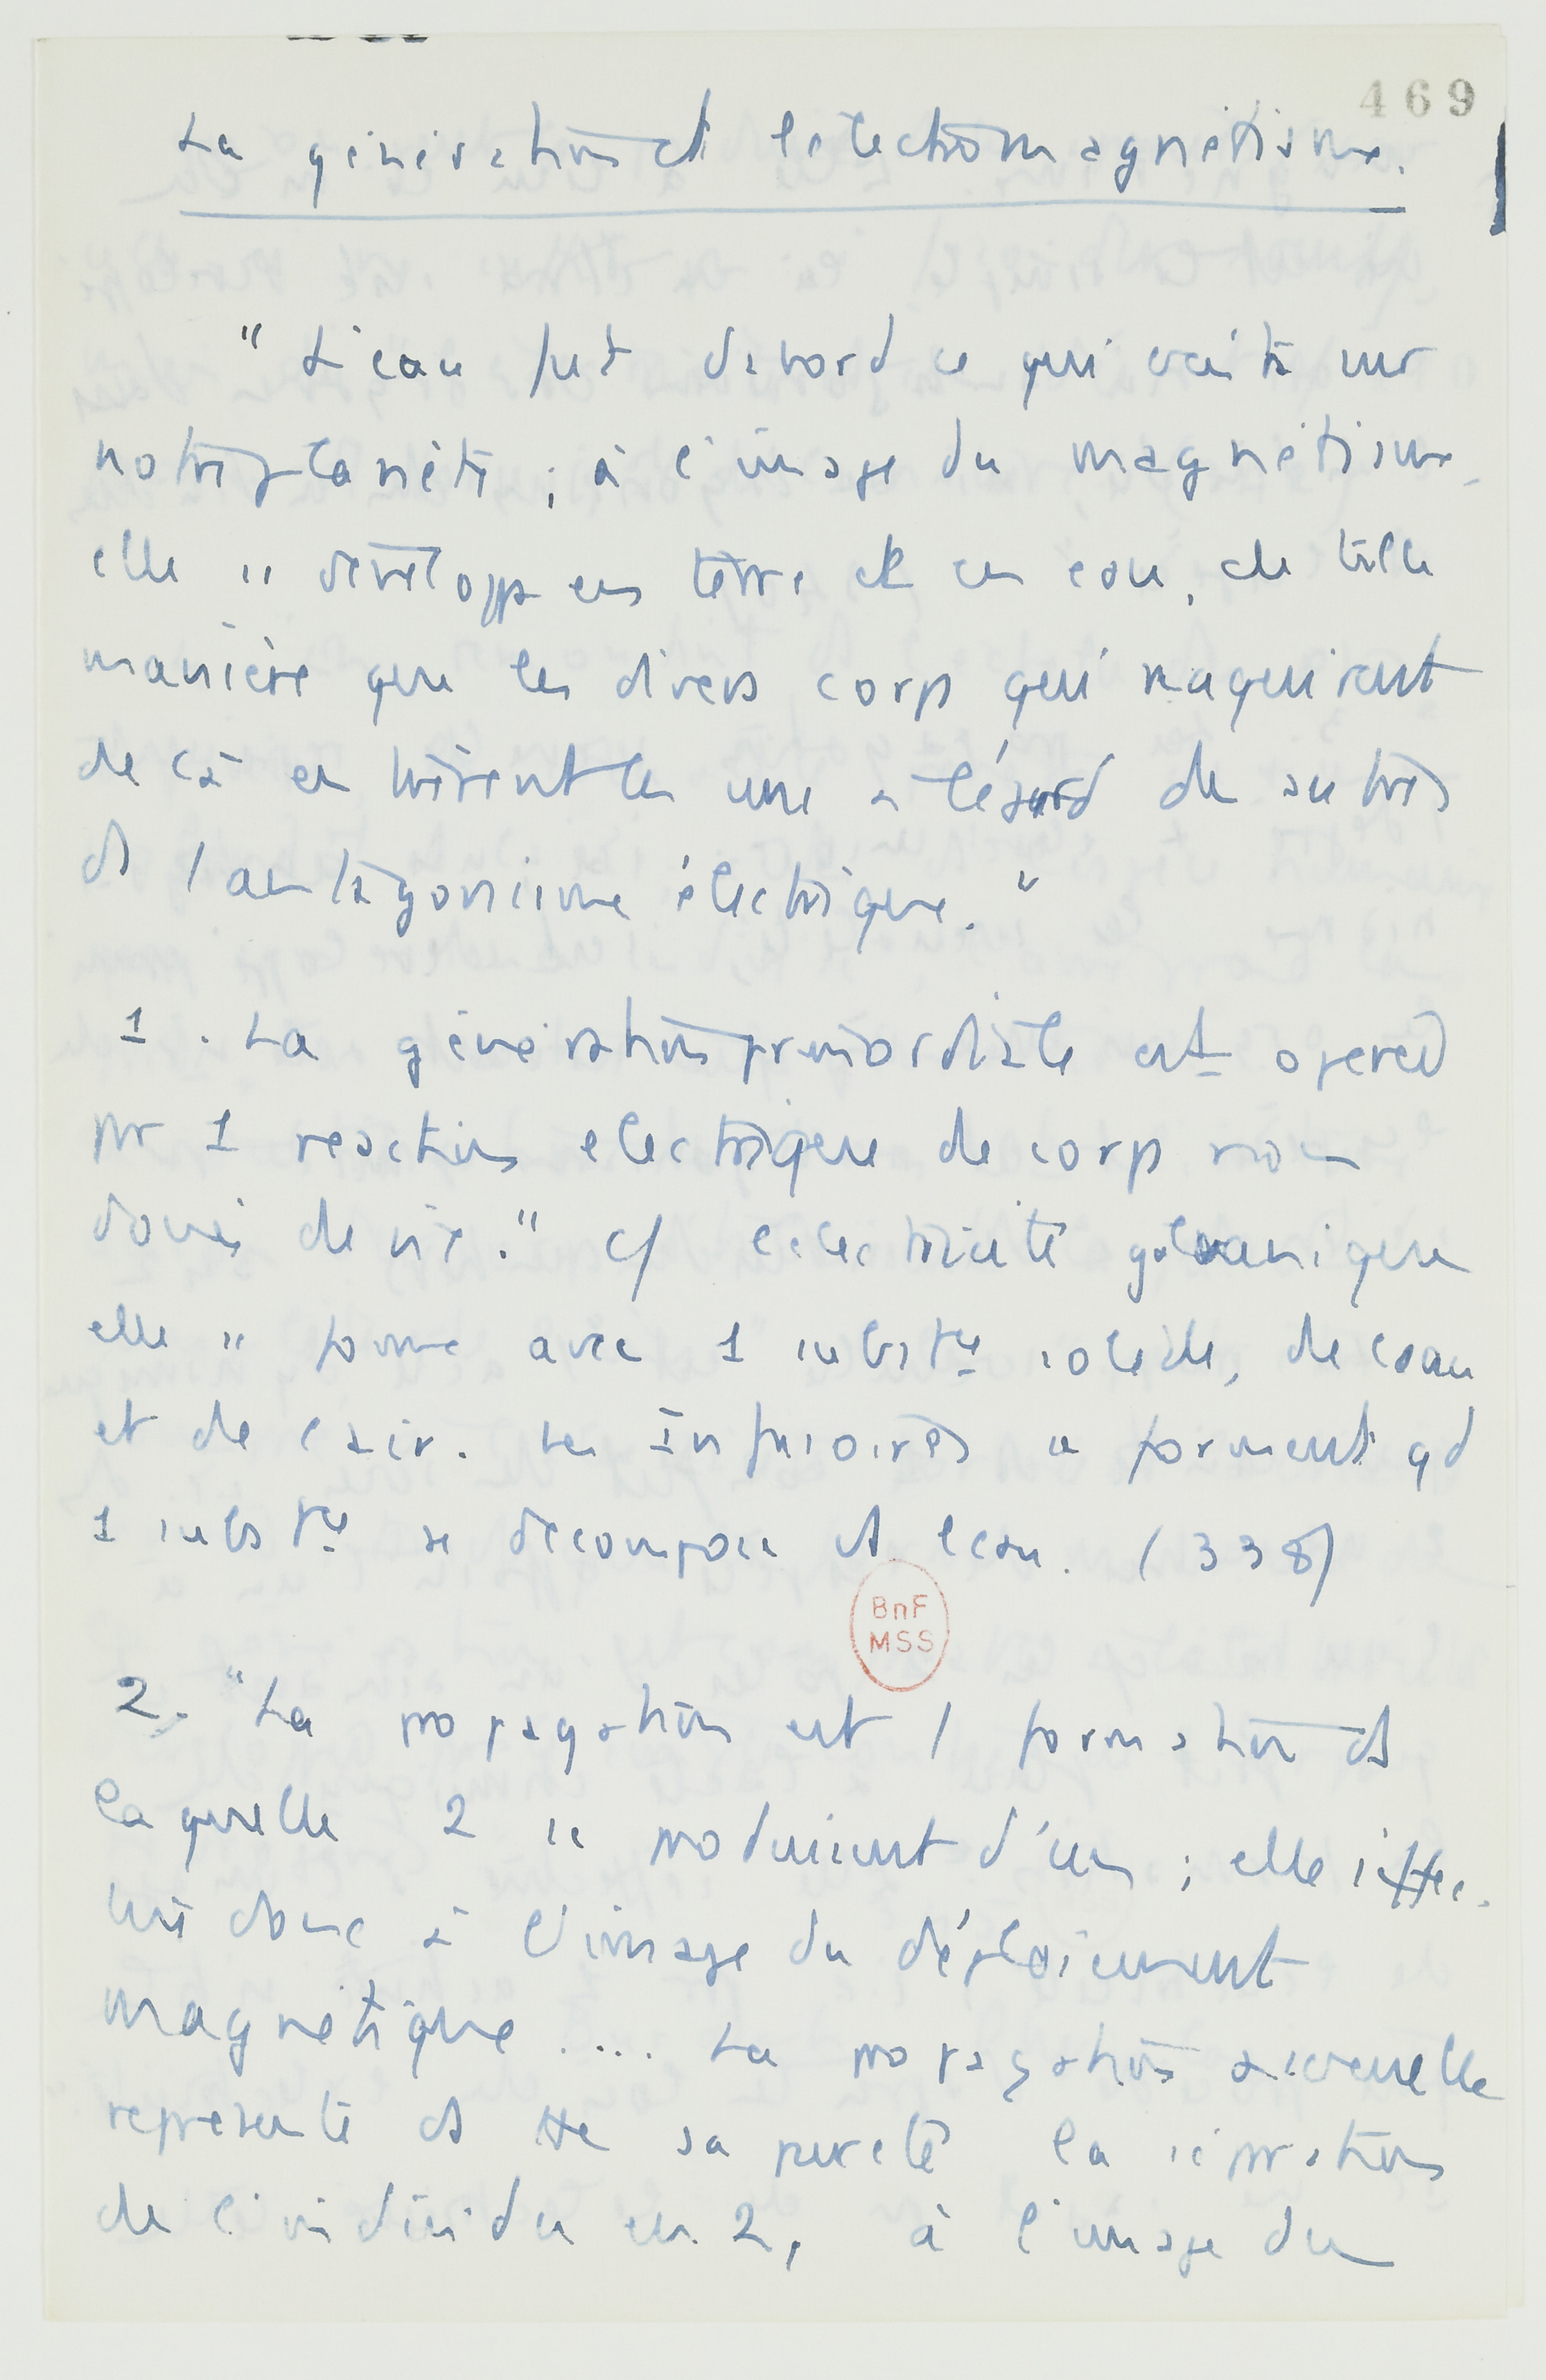 469
La génération et l'électromagnétisme.
" L'eau fut d'abord ce qui exista sur
notre planète ; à l'image du magnétisme,
elle se développa en terre et en eau, de telle
manière que les divers corps qui naquirent
de là entrèrent les uns à l'égard des autres
ds l'antagonisme électrique. "
1. La génération primordiale est opérée
par 1 réaction électrique de corps non
doués de vie." cf électricité galvanique
elle se forme avec 1 subst^ce solide, de l'eau
et de l'air. Les Infusoires se forment qd
1 subst^ce se décompose ds l'eau. (338)
2. "La propagation est 1 formation ds
laquelle 2 se produisent d'un ; elle s'effec-
tue donc à l'image du déploiement
magnétique .... La propagation sexuelle
représente ds tte sa pureté la séparation
de l'individu en 2, à l'image du
BnF
MSS